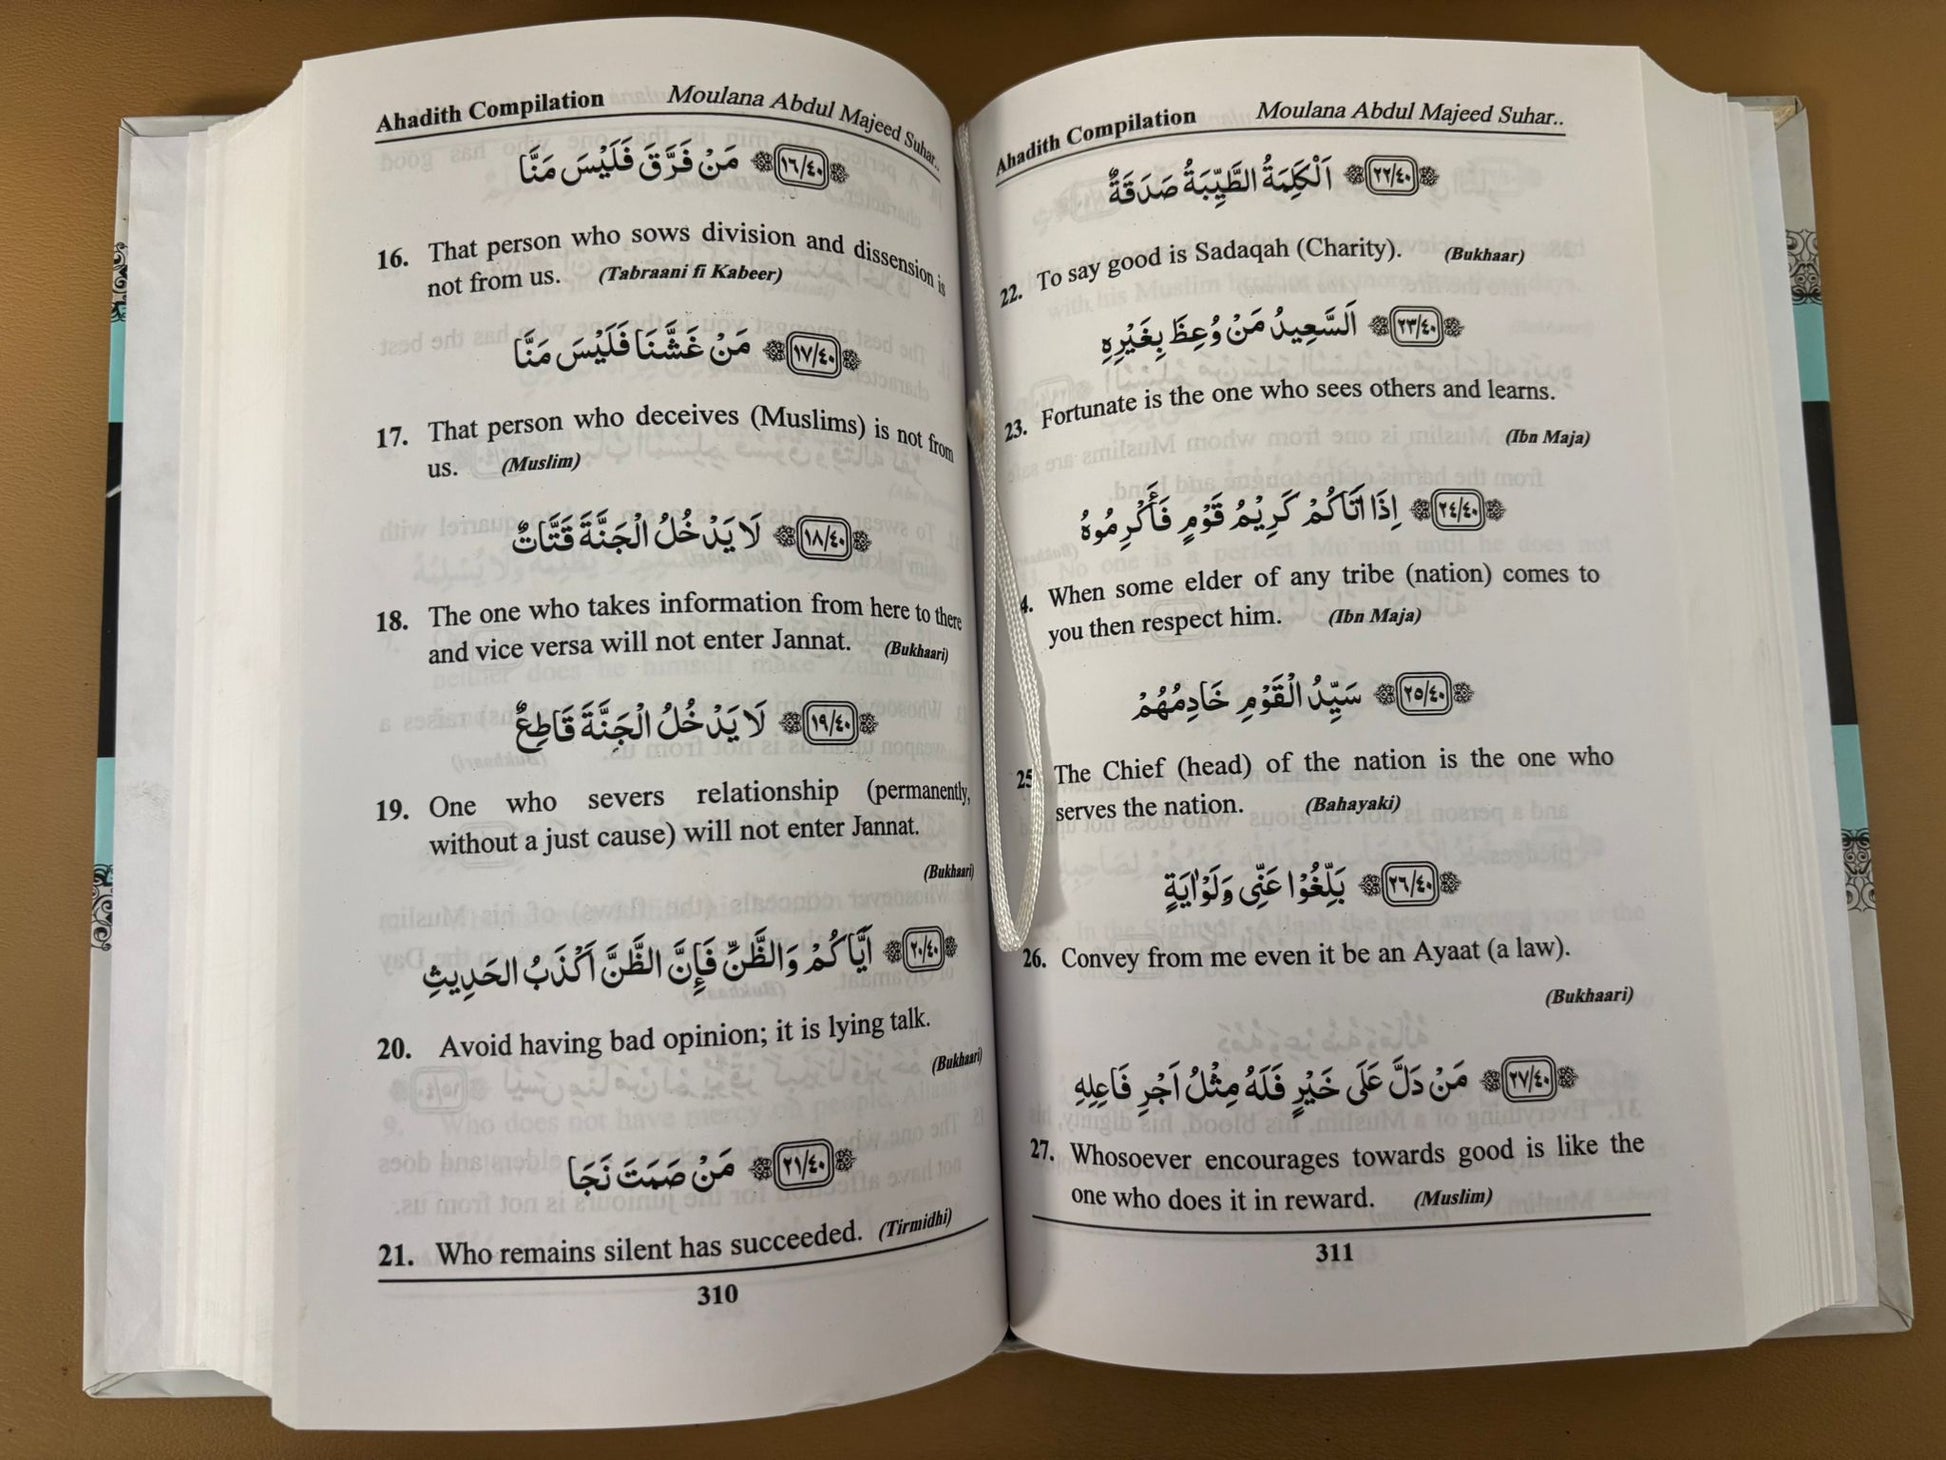 Ahadith Compilation Moulana Abdul Majeed Suhar..
١٦/٤٠ مَنْ فَرَّقَ فَلَيْسَ مَنَّا
16. That person who sows division and dissension is
not from us. (Tabraani fi Kabeer)
١٧/٤٠ مَنْ غَشَّنَا فَلَيْسَ مَنَّا
17. That person who deceives (Muslims) is not from
us. (Muslim)
١٨/٤٠ لَا يَدْخُلُ الْجَنَّةَ قَتَّاتٌ
18. The one who takes information from here to there
and vice versa will not enter Jannat. (Bukhaari)
١٩/٤٠ لَا يَدْخُلُ الْجَنَّةَ قَاطِعٌ
19. One who severs relationship (permanently,
without a just cause) will not enter Jannat.
(Bukhaari)
٢٠/٤٠ اَيَّاكُمْ وَالظَّنِّ فَإِنَّ الظَّنَّ اَكْذَبُ الحَدِيثِ
20. Avoid having bad opinion; it is lying talk.
(Bukhaari)
٢١/٤٠ مَنْ صَمَتَ نَجَا
21. Who remains silent has succeeded. (Tirmidhi)
310
Ahadith Compilation Moulana Abdul Majeed Suhar..
٢٢/٤٠ اَلْكَلِمَةُ الطَّيِّبَةُ صَدَقَةٌ
22. To say good is Sadaqah (Charity). (Bukhaar)
٢٣/٤٠ اَلسَّعِيدُ مَنْ وُعِظَ بِغَيْرِهِ
23. Fortunate is the one who sees others and learns.
(Ibn Maja)
٢٤/٤٠ اِذَا اَتَاكُمْ كَرِيْمُ قَوْمٍ فَأَكْرِمُوهُ
4. When some elder of any tribe (nation) comes to
you then respect him. (Ibn Maja)
٢٥/٤٠ سَيِّدُ الْقَوْمِ خَادِمُهُمْ
25 The Chief (head) of the nation is the one who
serves the nation. (Bahayaki)
٢٦/٤٠ بَلِّغُوْا عَنِّى وَلَوْاٰيَةٍ
26. Convey from me even it be an Ayaat (a law).
(Bukhaari)
٢٧/٤٠ مَنْ دَلَّ عَلَى خَيْرٍ فَلَهُ مِثْلُ اَجْرِ فَاعِلِهِ
27. Whosoever encourages towards good is like the
one who does it in reward. (Muslim)
311